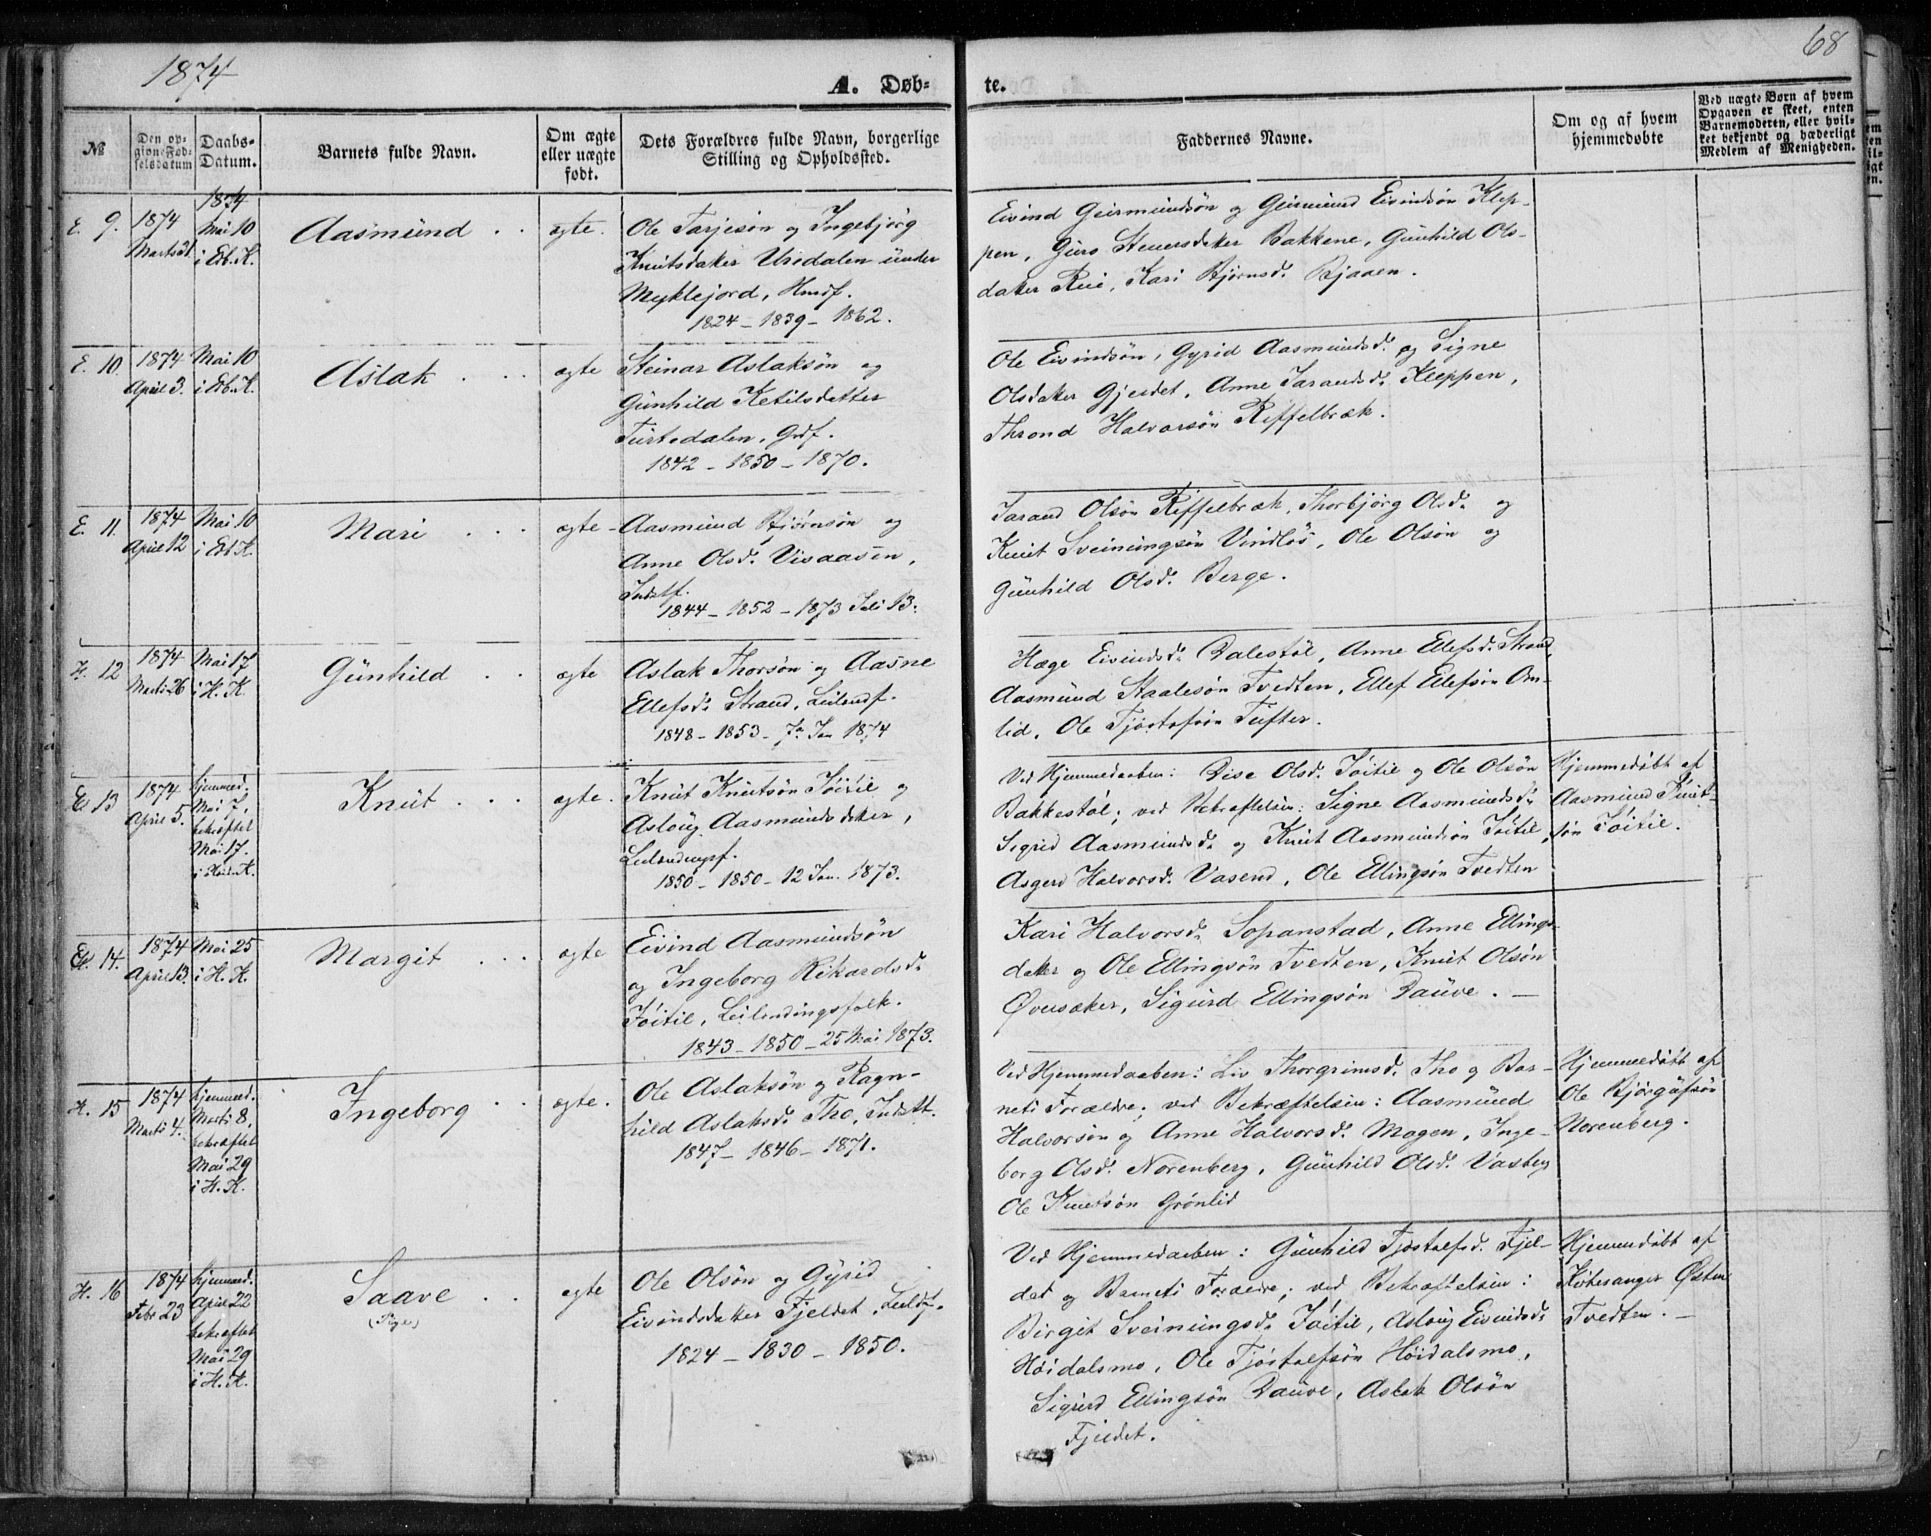 1874
68
A. Døb-
te.
No
Den op-
givne Fød-
selsdatum
Daabs-
Datum.
Barnets fulde Navn.
Om ægte
eller uægte
født.
Dets Forældres fulde Navn, borgerlige
Stilling og Opholdssted.
Faddernes Navne.
Om og af hvem
hjemmedøbte
Ved uægte Børn af hvem
Opgaven er skeet, enten
Barnemoderen, eller hvil-
ket bekjendt og hæderligt
Medlem af Menigheden.
E. 9.
1874
Marts 21
1874
Mai 10
Aasmund
ægte.
Ole Tarjesøn og Ingebjørg
Knutsdatter Uredalen under
Myklejord, Hmdf.
1824 - 1839 - 1862.
Eivind Geirmundsøn og Geirmund Eivindsøn Klep-
pen, Guro Steinersdatter Bakkene, Gunhild Ols-
datter Rui, Kari Bjørnsd. Bjaaen.
E. 10.
1874
April 3.
Mai 10
Aslak
ægte
Steinar Aslaksøn og
Gunhild Ketilsdatter
Turtedalen, Grdf.
1842 - 1850 - 1870.
Ole Eivindsøn, Gyrid Aasmundsd. og Signe
Olsdatter Gjerdet, Anne Tarandsd. Kleppen,
Thrond Halvorsøn Riffelbræk.
E. 11.
1874
April 12
Mai 10
Mari
ægte
Aasmund Bjørnsøn og
Anne Olsd. Visaasen,
Indstf.
1844 - 1852 - 1873 Juli 13.
Tarand Olsøn Riffelbræk, Thorbjørg Olsd. og
Knut Sveinungsøn Vindløs, Ole Olsøn og
Gunhild Olsd. Berge.
12
1874
Marts 26
Mai 17
i H. K.
Gunhild
ægte
Aslak Thorsøn og Aasne
Ellefsd. Strand, Leilendf.
1848 - 1853 - 7 Jan 1874
Hæge Eivindsd. Dalestøl, Anne Ellefsd. Strand,
Aasmund Staalesøn Tvedten, Ellef Ellefsøn Om-
lid, Ole Tjøstofsøn Tufter.
13
1874
April 5.
hjemmed.
Mai 7,
bekræftet
Mai 17.
Knut
ægte.
Knut Knutsøn Tøitil og
Asloug Aasmundsdatter,
Leilendingsf.
1850 - 1850 - 12 Jan. 1873.
Ved Hjemmedaaben: Dise Olsd. Tøitil og Ole Olsøn
Bakkestøl; ved Bekræftelsen: Signe Aasmundsd.
Sigrid Aasmundsd. og Knut Aasmundsøn Tøitil,
Asgerd Halvorsd. Vasend, Ole Ellingsøn Tvedten
Hjemmedøbt af
Aasmund Knut-
søn Tøitil.
14.
1874
April 13.
Mai 25
i H. K.
Margit
ægte
Eivind Aasmundsøn
og Ingeborg Rikardsd.
Tøitil, Leilendingsfolk.
1843 - 1850 - 25 Mai 1873.
Kari Halvorsd. Sopanstad, Anne Ellings-
datter og Ole Ellingsøn Tvedten, Knut Olsøn
Øversæker, Sigurd Ellingsøn Dauve. —
H. 15
1874
Marts 4.
hjemmed.
Marts 8,
bekræftet
Mai 29
i H. K.
Ingeborg
ægte.
Ole Aslaksøn og Ragn-
hild Aslaksd. Tho, Indstf.
1847 - 1846 - 1871.
Ved Hjemmedaaben: Liv Thorgrimsd. Tho og Bar-
nets Forældre; ved Bekræftelsen: Aasmund
Halvorsøn og Anne Halvorsd. Mogen, Inge-
borg Olsd. Norenberg, Gunhild Olsd. Vaaberg
Ole Knutsøn Grønlid
Hjemmedøbt af
Ole Bjørgufsøn
Norenberg.
H. 16
1874
Febr 23
hjemmed.
April 22
bekræftet
Mai 29
i H. K.
Saave
(Pige)
ægte
Ole Olsøn og Gyrid
Eivindsdatter Fjeldet, Leildf.
1824 - 1830 - 1850.
Ved Hjemmedaaben: Gunhild Tjøstolfsd. Fjel-
det og Barnets Forældre; ved Bekræftelsen:
Birgit Sveinungsd. Tøitil, Asloug Eivindsd.
Høidalsmo, Ole Tjøstolfsøn Høidalsmo,
Sigurd Ellingsøn Dauve, Aslak Olsøn
Fjeldet.
Hjemmedøbt af
Kirkesanger Østen
Tvedten. —